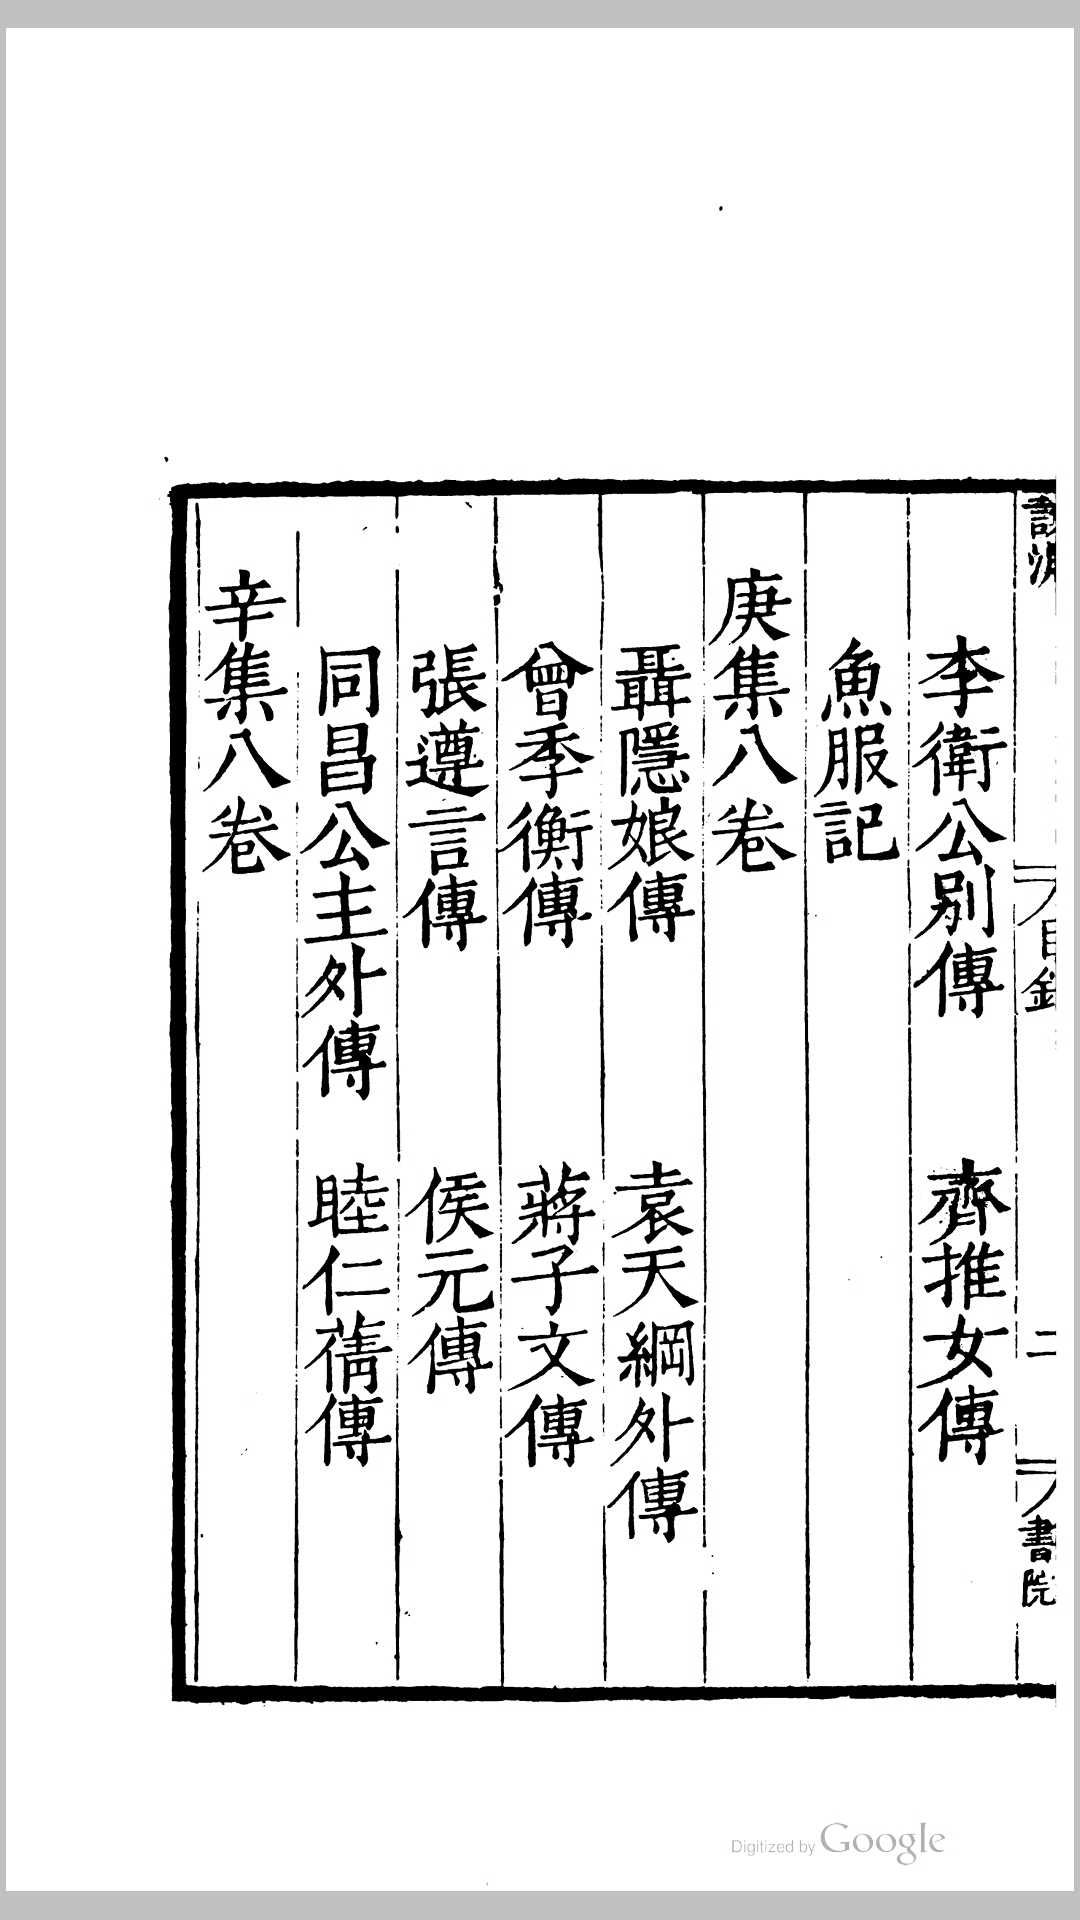 說淵
目錄
二
書院
李衛公别傳 齊推女傳
魚服記
庚集八卷
聶隱娘傳 袁天綱外傳
曾季衡傳 蔣子文傳
張遵言傳 侯元傳
同昌公主外傳 睦仁蒨傳
辛集八卷
Digitized by Google